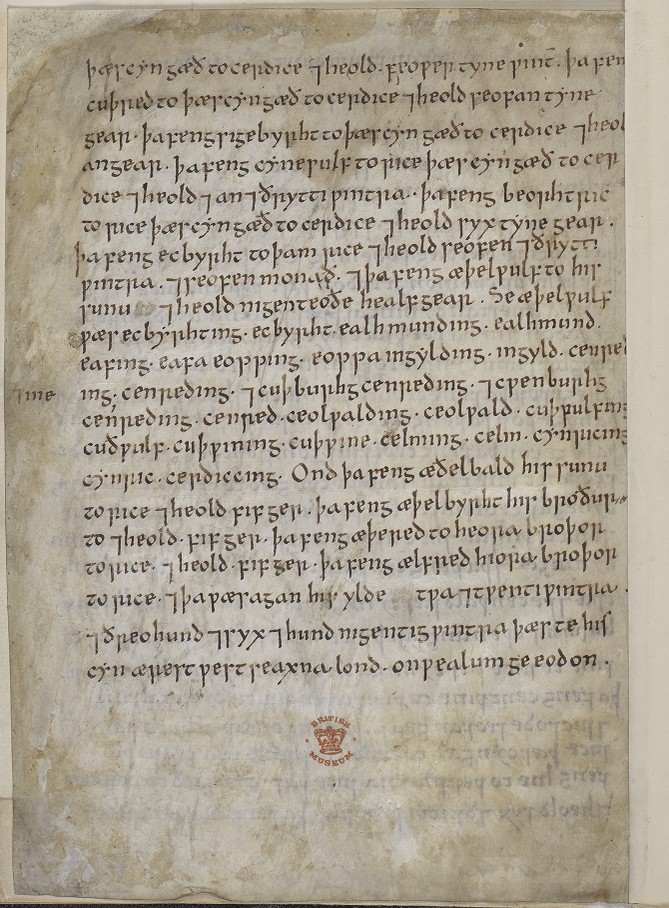 þæs cyn gæð to cerdice ⁊heold. feoƿer tyne ƿint̄. þa fen
cuþred to þæs cyn gæð to cerdice ⁊heold seofan tyne
gear. þa feng sigebyrht to þæs cyn gæð to cerdice ⁊heol
an gear. þa feng cyneƿulf to rice þæs cyn gæð to cer
dice ⁊heold ⁊an ⁊ðrytti ƿintra. þa feng beorhtric
to rice þæs cyn gæð to cerdice ⁊heold syxtyne gear.
þa feng ecbyrht to þam rice ⁊heold seofen ⁊ðrytti
ƿintra. ⁊seofen monað. ⁊þa feng æþelƿulf to his
sunu ⁊heold nigenteoðe healf gear. Se æþelƿulf
ƿæs ecbyrhting. ecbyrht. ealhmunding. ealhmund.
eafing. eafa eopping. eoppa ingylding. ingyld. cenred
⁊ine ing. cenreding. ⁊cuþburhg cenreding. ⁊cƿenburhg
cenreding. cenred. ceolƿalding. ceolƿald. cuþƿulfing
cuðƿulf. cuþƿining. cuþƿine. celming. celm. cynricing
cynric. cerdiccing. Ond þa feng æðelbald his sunu
to rice ⁊heold fif ger. þa feng æþelbyrht his broður
to ⁊heold. fif ger. þa feng æþered to heora broþor
to rice. ⁊heold. fif ger. þa feng ælfred hiora broþor
to rice. ⁊þa ƿæs agan his ylde tƿa ⁊tƿenti ƿintra.
⁊ðreohund ⁊syx ⁊hund nigentig ƿintra þæs te his
cyn ærest ƿest seaxna lond. on ƿealum geeodon.
BRITISH
MUSEUM